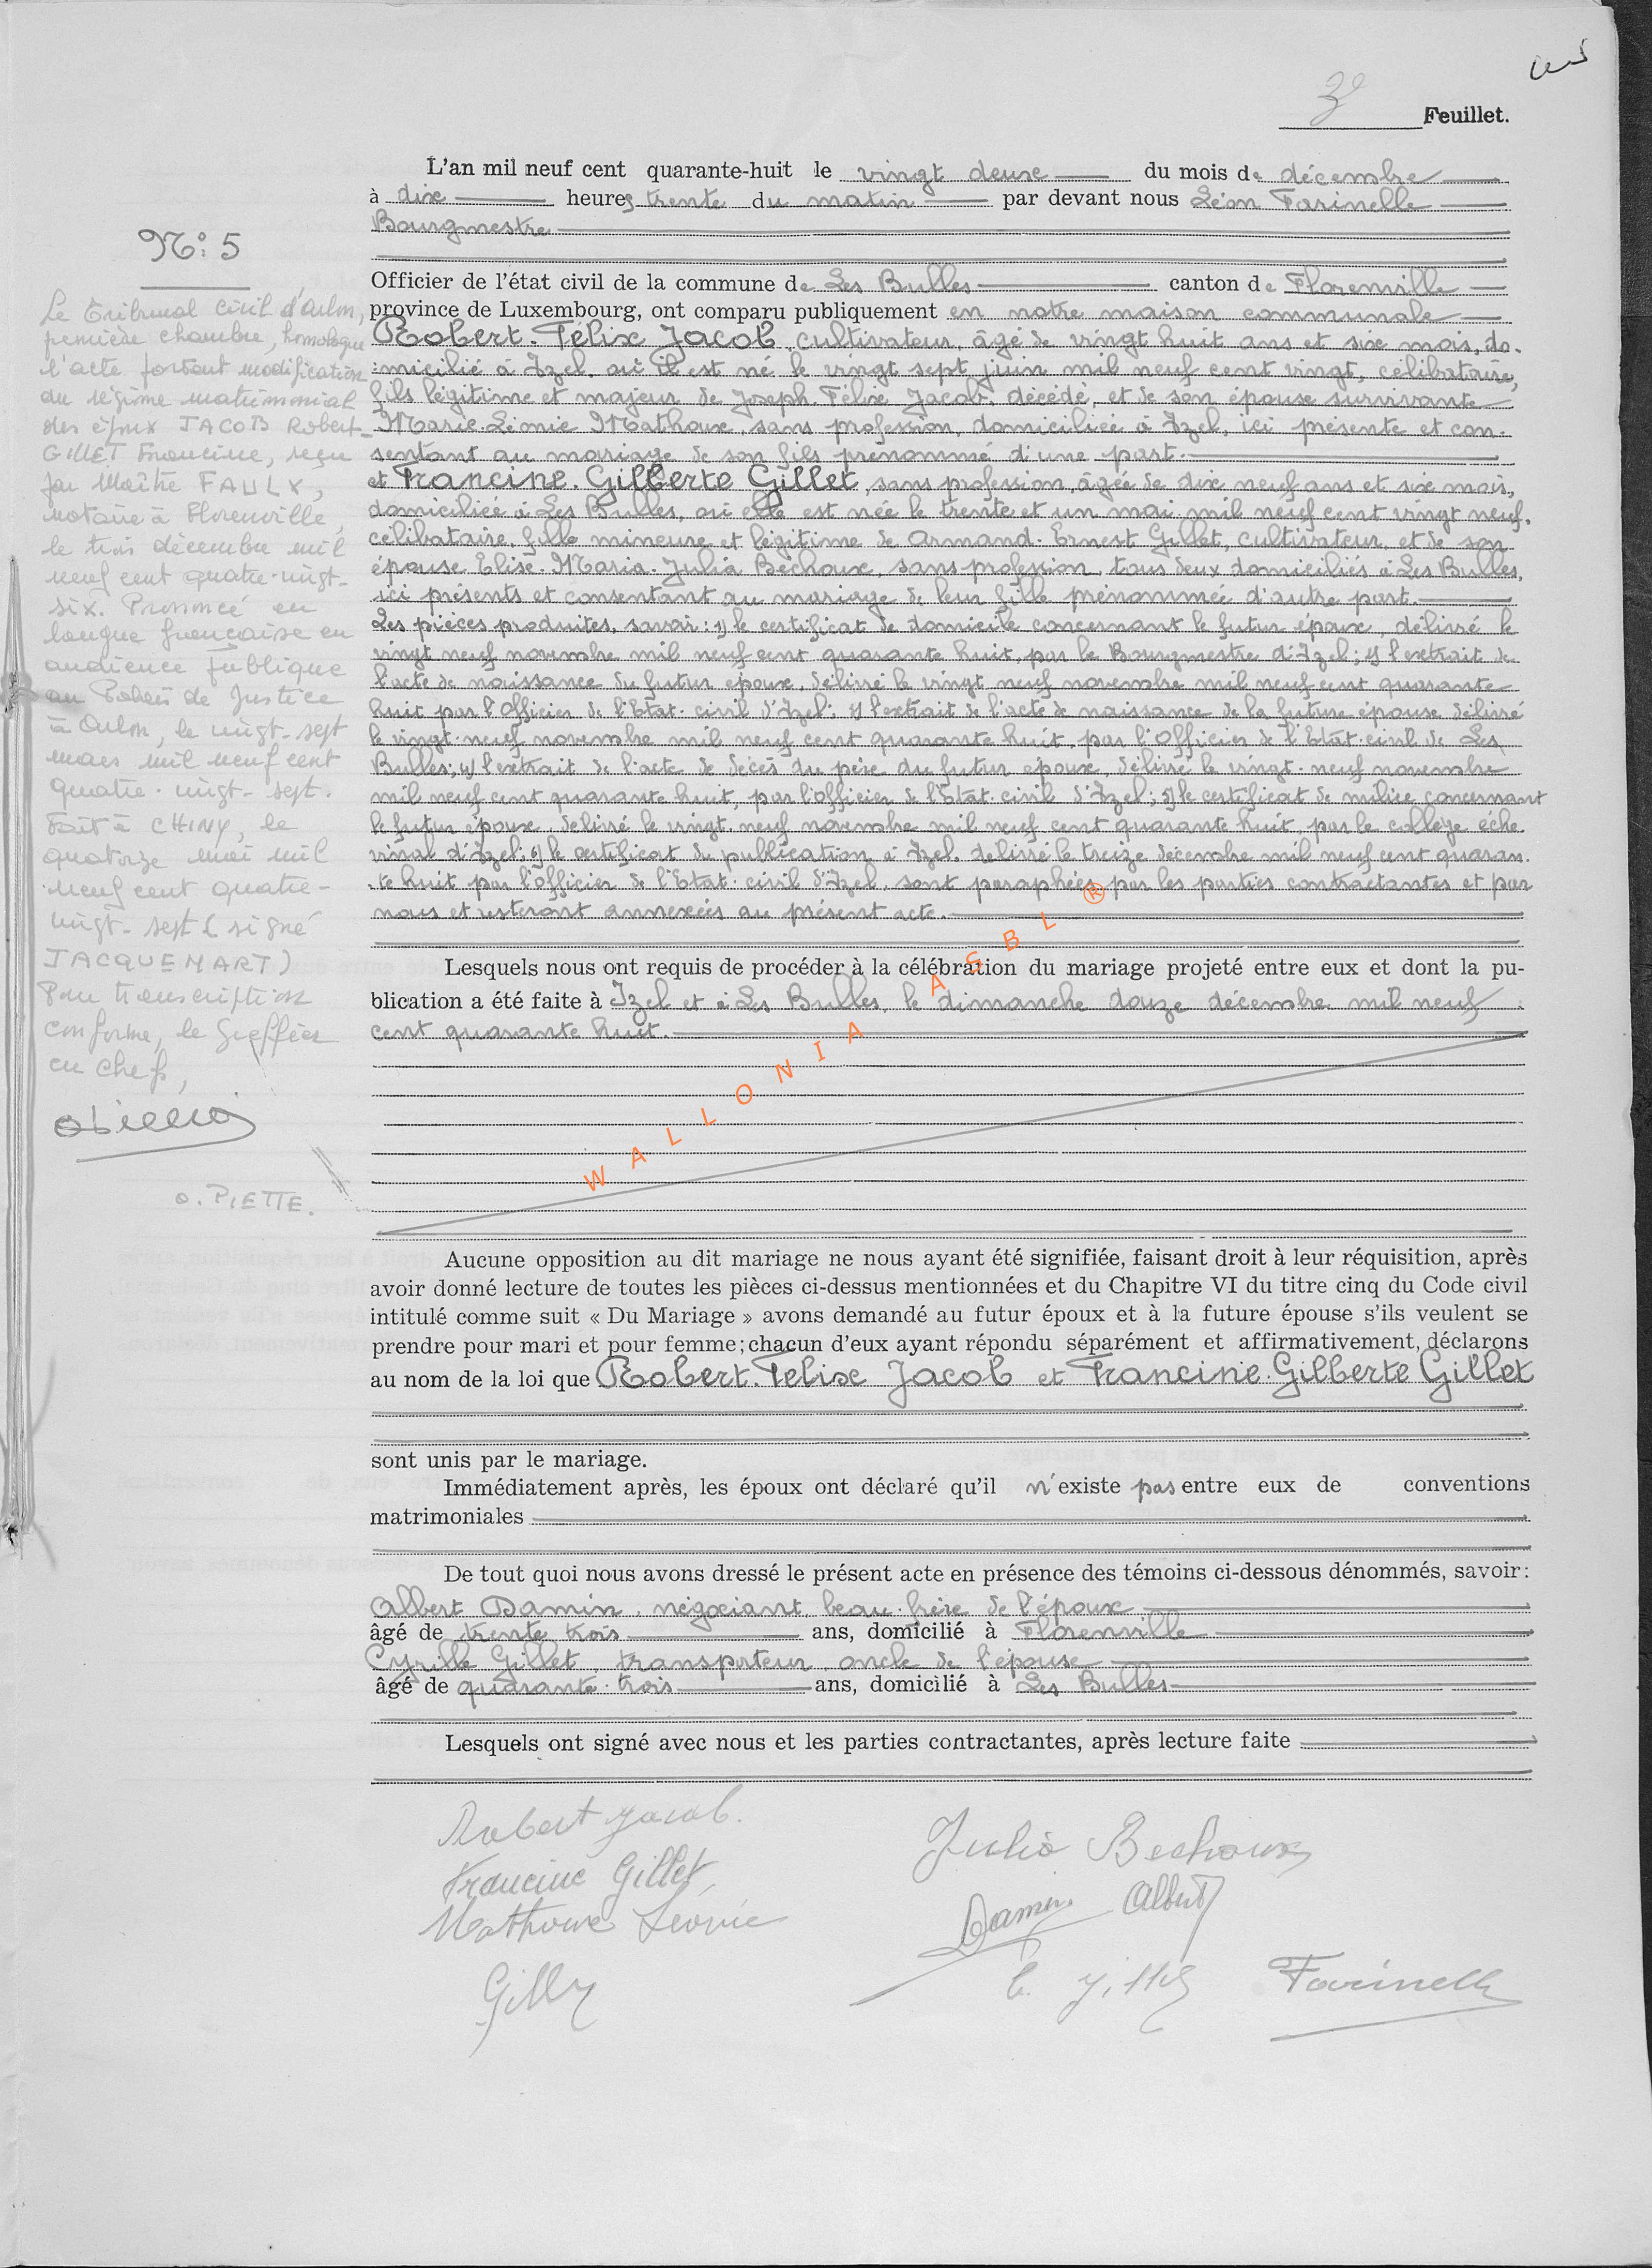 3e Feuillet.
L'an mil neuf cent quarante-huit le vingt deux du mois de décembre
à dix heures trente du matin par devant nous Léon Farinelle
Bourgmestre
N°: 5
Officier de l'état civil de la commune de Les Bulles canton de Florenville
province de Luxembourg, ont comparu publiquement en notre maison communale
Robert. Félix Jacob, cultivateur, âgé de vingt huit ans et six mois, do-
:micilié à Izel, où il est né le vingt sept juin mil neuf cent vingt, célibataire,
fils légitime et majeur de Joseph. Félix Jacob, décédé, et de son épouse survivante
Marie. Léonie Mathoux, sans profession, domiciliée à Izel, ici présente et con-
sentant au mariage de son fils prénommé d'une part.
et Francine. Gilberte Gillet, sans profession, âgée de dix neuf ans et six mois,
domiciliée à Les Bulles, où elle est née le trente et un mai mil neuf cent vingt neuf,
célibataire, fille mineure et légitime de Armand. Ernest Gillet, cultivateur, et de son
épouse Elise. Maria. Julia Béchoux, sans profession, tous deux domiciliés à Les Bulles,
ici présents et consentant au mariage de leur fille prénommée d'autre part.
Les pièces produites, savoir: 1) le certificat de domicile concernant le futur époux, délivré le
vingt neuf novembre mil neuf cent quarante huit, par le Bourgmestre d'Izel; 2) l'extrait de
l'acte de naissance du futur époux, délivré le vingt neuf novembre mil neuf cent quarante
huit par l'Officier de l'Etat. civil d'Izel; 3) l'extrait de l'acte de naissance de la future épouse délivré
le vingt. neuf novembre mil neuf cent quarante huit, par l'Officier de l'Etat. civil de Les
Bulles; 4) l'extrait de l'acte de décès du père du futur époux, délivré le vingt. neuf novembre
mil neuf cent quarante huit, par l'officier de l'Etat. civil d'Izel; 5) le certificat de milice concernant
le futur époux délivré le vingt. neuf novembre mil neuf cent quarante huit, par le collège éche-
vinal d'Izel; 6) le certificat de publication à Izel. délivré le treize décembre mil neuf cent quaran-
te huit par l'officier de l'Etat. civil d'Izel, sont paraphées par les parties contractantes et par
nous et resteront annexées au présent acte.
Lesquels nous ont requis de procéder à la célébration du mariage projeté entre eux et dont la pu-
blication a été faite à Izel et à Les Bulles, le dimanche douze décembre mil neuf
cent quarante huit.
Le Tribunal civil d'Arlon,
première chambre, homologue
l'acte portant modification
du régime matrimonial
des époux JACOB Robert-
GILLET Francine, reçu
par Maître FAULX,
notaire à Florenville,
le trois décembre mil
neuf cent quatre-vingt-
six. Prononcé en
langue française en
audience publique
au Palais de Justice
à Arlon, le vingt-sept
mars mil neuf cent
quatre-vingt-sept.
Fait à CHINY, le
quatorze mai mil
neuf cent quatre-
vingt-sept (signé
JACQUEMART)
Pour transcription
conforme, le Greffier
en chef,
O. PIETTE.
WALLONIA ASBL ®
Aucune opposition au dit mariage ne nous ayant été signifiée, faisant droit à leur réquisition, après
avoir donné lecture de toutes les pièces ci-dessus mentionnées et du Chapitre VI du titre cinq du Code civil
intitulé comme suit « Du Mariage » avons demandé au futur époux et à la future épouse s'ils veulent se
prendre pour mari et pour femme; chacun d'eux ayant répondu séparément et affirmativement, déclarons
au nom de la loi que Robert. Félix Jacob et Francine. Gilberte Gillet
sont unis par le mariage.
Immédiatement après, les époux ont déclaré qu'il n'existe pas entre eux de conventions
matrimoniales
De tout quoi nous avons dressé le présent acte en présence des témoins ci-dessous dénommés, savoir:
Albert Damin, négociant, beau. frère de l'époux
âgé de trente trois ans, domicilié à Florenville
Cyrille Gillet, transporteur, oncle de l'épouse
âgé de quarante. trois ans, domicilié à Les Bulles
Lesquels ont signé avec nous et les parties contractantes, après lecture faite
Robert Jacob.
Francine Gillet
Mathoux Léonie
Julia Bechoux
Damin Albert
C. Gillet
Farinelle